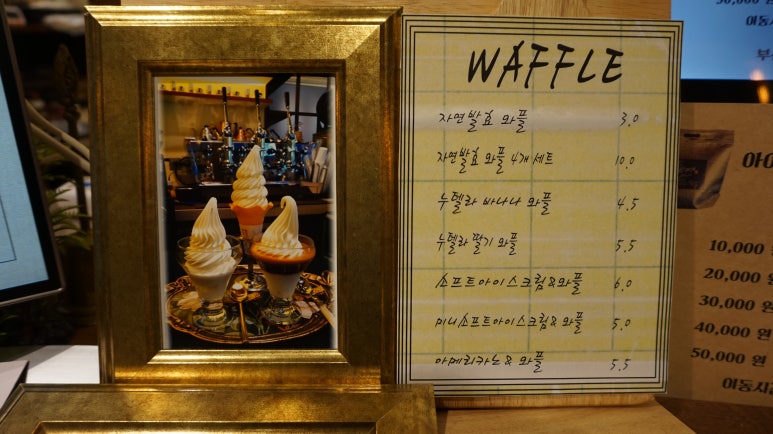 WAFFLE
자연발효 와플 3.0
자연발효 와플 4개 세트 10.0
누텔라 바나나 와플 4.5
누텔라 딸기 와플 5.5
소프트아이스크림&와플 6.0
미니소프트아이스크림&와플 5.0
아메리카노& 와플 5.5
50,000 원
이동시
부
아이
10,000 원
20,000 원
30,000 원
40,000 원
50,000 원
이동시